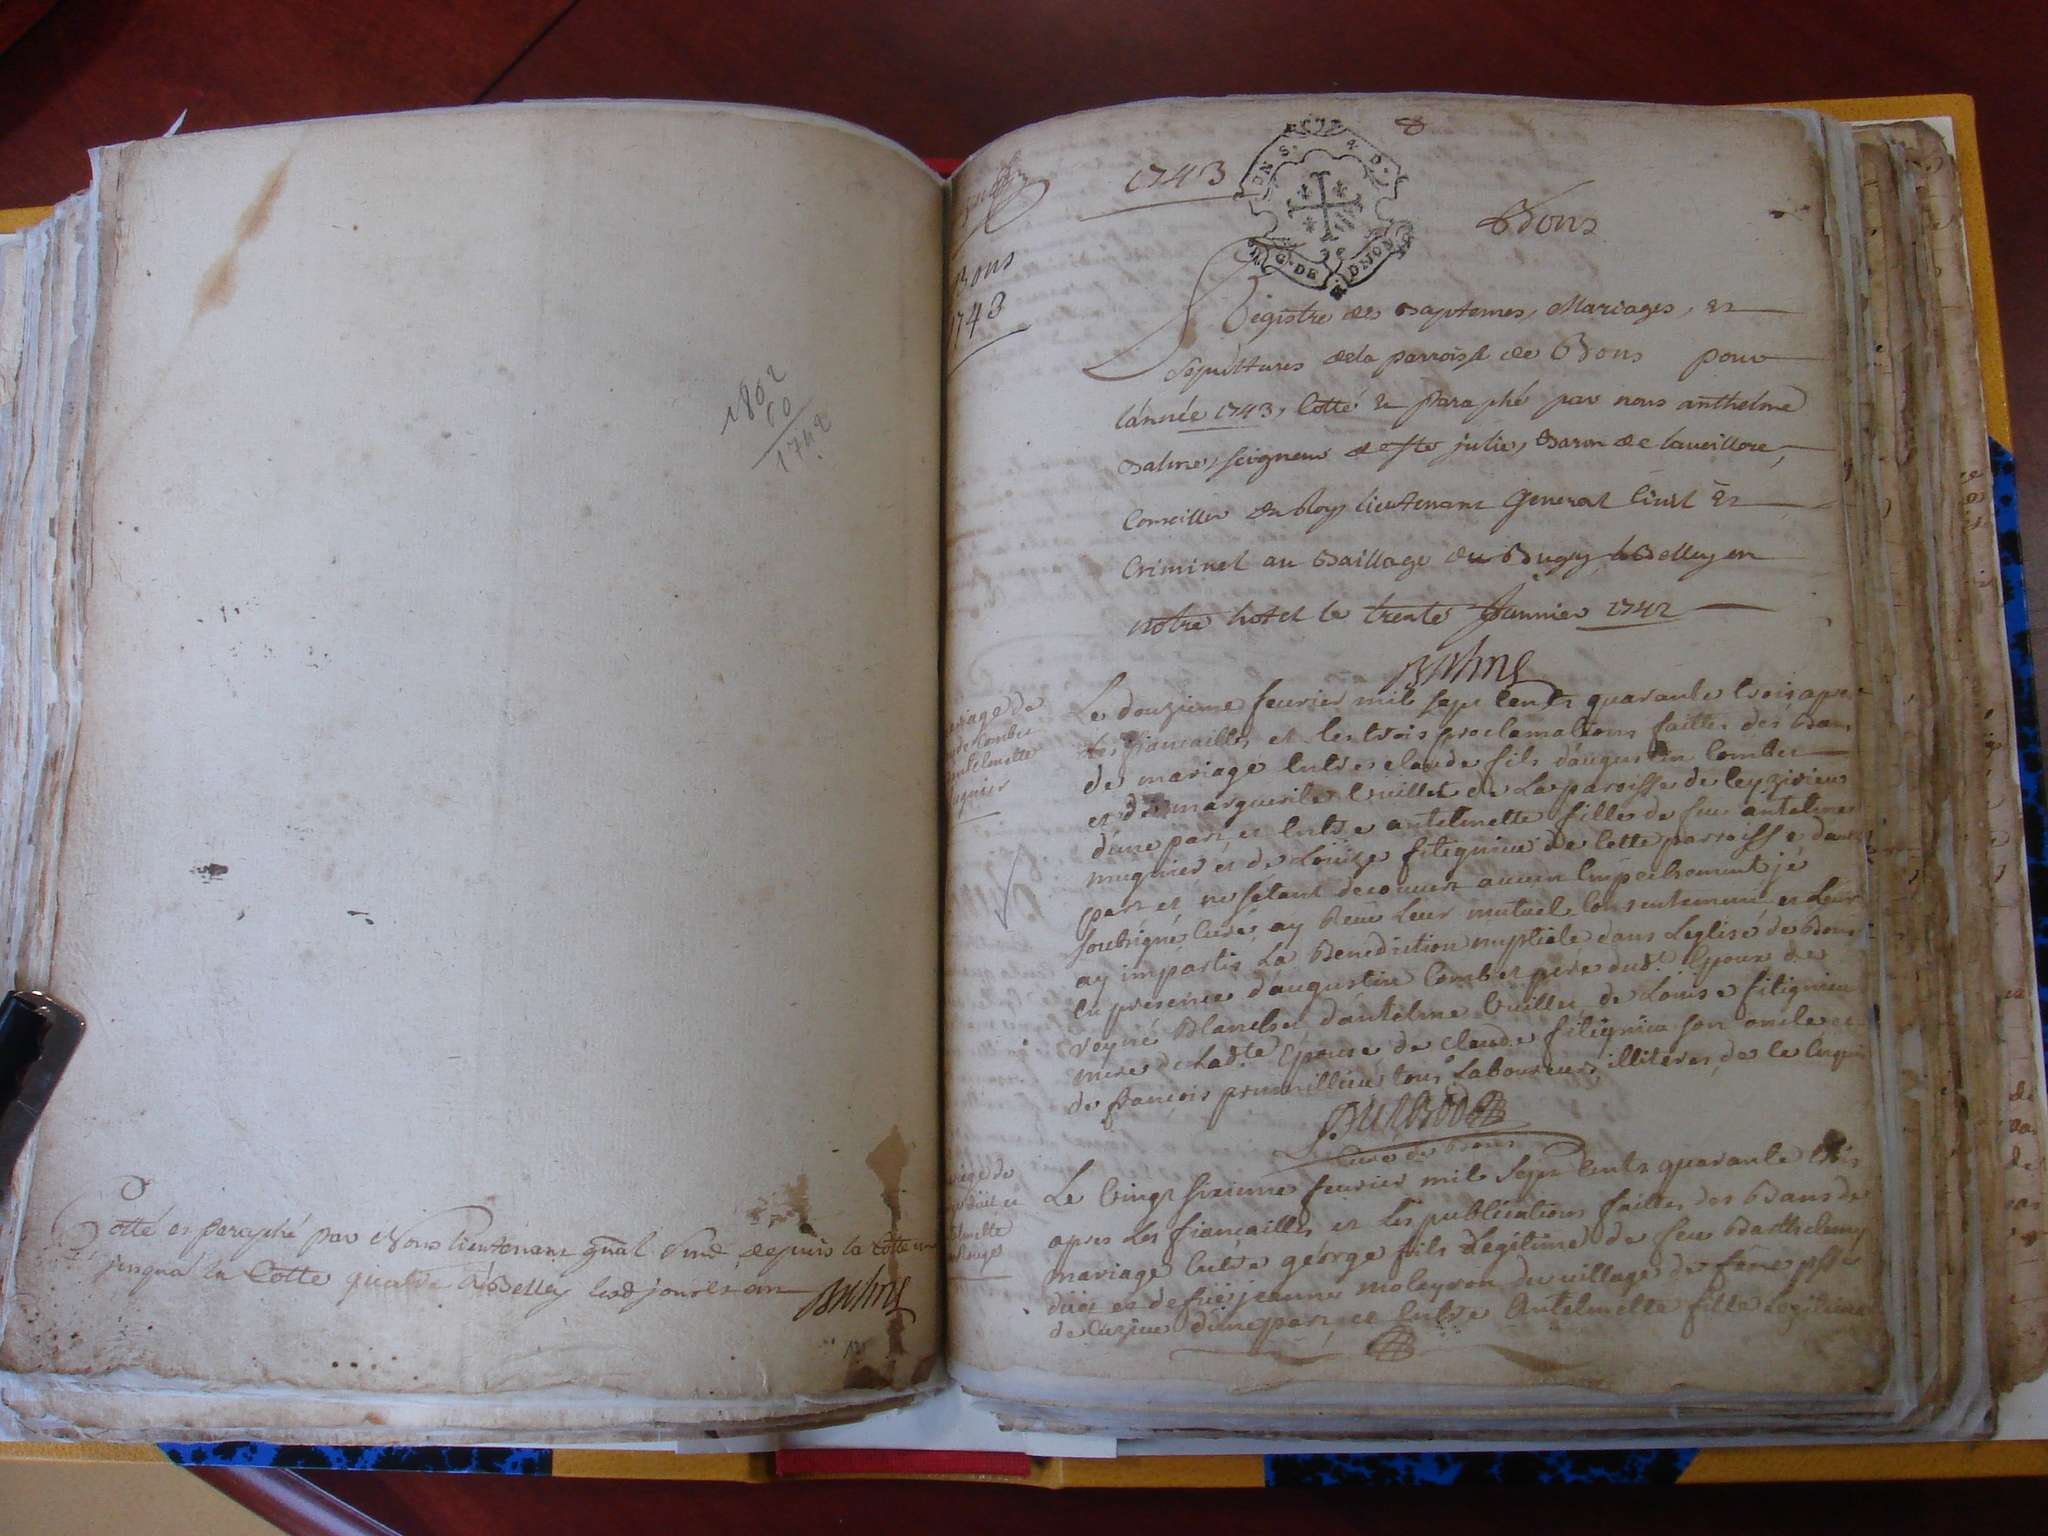 1802
60
1742
Cotté et paraphé par Nous Lieutenant gñal susd. depuis la cotte une
jusqu'a la Cotte quatre a Belley lesd jour et an
Balme
1743
Bons
Bons
1743
G. DE DIJON
Registre des Baptemes, Mariages, et
Sepultures de la parroisse de Bons pour
l'année 1743, Cotté et Paraphé par nous anthelme
Balme, seigneur de Ste julie, Baron de
Conseiller du Roy, lieutenant General Civil et
Criminel au Baillage du Bugey, a Belley en
notre hotel le trente Janvier 1742
Balme
mariage de
Combet
antelmette
mugnier
Le douzieme fevrier mil sept cents quarante trois apres
les fiancailles et les trois proclamations faittes des Bans
de mariage entre claude fils d'augustin Combet
et de marguerite Cuillet de La paroisse de leyzirieu
d'une part, et entre antelmette fille de feu antelme
mugnier et de Louize fitignieu de Cette parroisse d'autre
part et ne s'etant decouvert aucun Empechement je
soubsigné, Curé, ay Receu Leur mutuel Consentement et Leur
ay imparti La Benediction nuptiale dans L'eglise de Bons
En presence d'augustin Combet pere dudt. Epoux de
Blanchet d'antelme Cuillet de Louise fitignieu
mere de Ladte Epouse de claude fitignieu son oncle et
de françois prumillieu tous Laboureurs, illiteres, de ce Enquis
Curé de Bons
mariage de
antelmette
Le Vingt sixieme fevrier mil Sept Cents quarante trois
apres Les fiançailles et Les publications faittes des Bans de
mariage Entre george fils Legitime de feu Barthelemy
et de feüe jeanne moleyron du village de
de Cuzieu d'une part, et Entre Antelmette fille Legitime